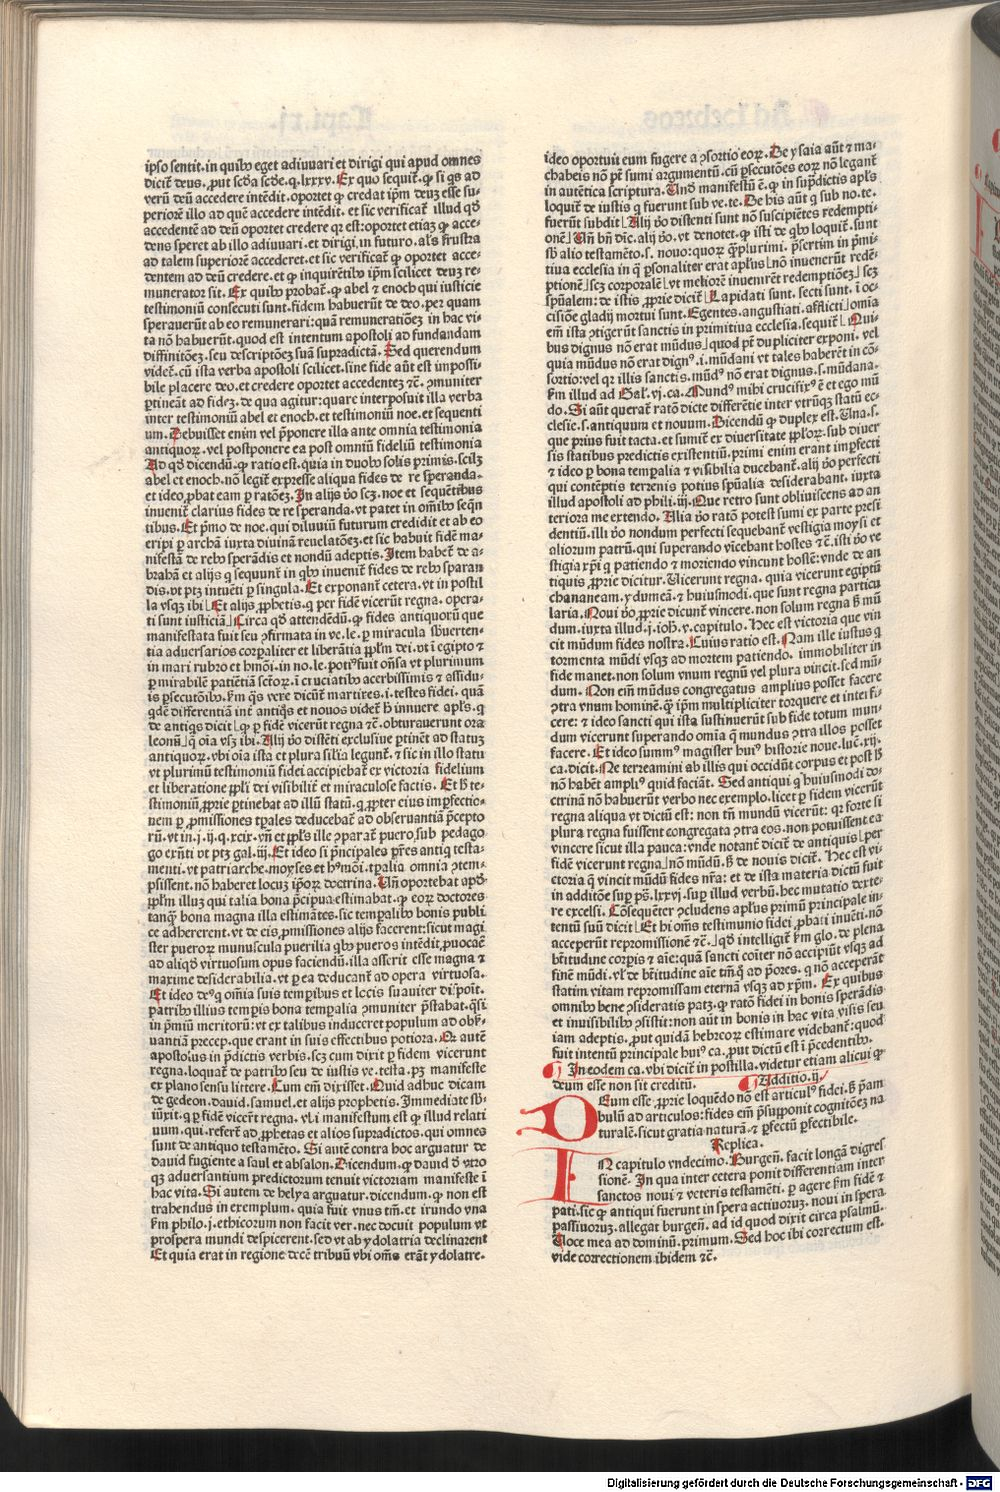 ipso sentit.in quibꝰ eget adiuuari et dirigi qui apud omnes
dicit̃ deus.ꝓut scḋa scḋe.q.lxxxv.Ex quo sequit̃.ꝙ si qs ad
verũ deũ accedere intẽdit.oportet ꝙ credat ipm̃ deuʒ esse su⸗
periorẽ illo ad quẽ accedere intẽdit.et sic verificat̃ illud qḋ
accedentẽ ad deũ oportet credere qꝛ est:oportet etiaʒ ꝙ acce⸗
dens speret ab illo adiuuari.et dirigi.in futuro.al's frustra
ad talem superiorẽ accederet.et sic verificat̃ ꝙ oportet acce⸗
dentem ad deũ credere.et ꝙ inquirẽtibꝰ ipm̃ scilicet deuʒ re⸗
munerator sit.Ex quibꝰ probat̃.ꝙ abel ⁊ enoch qui iusticie
testimoniũ consecuti sunt.fidem habuerũt de deo.per quam
sperauerũt ab eo remunerari:quã remuneratiõeʒ in hac vi⸗
ta nõ habuerũt.quod est intentum apostoli ad fundandam
diffinitõeʒ.seu descriptõeʒ suã supradictã.Sed querendum
videt̃.cũ ista verba apostoli scilicet.sine fide aũt est impossi⸗
bile placere deo.et credere oportet accedenteʒ ⁊c̃.ꝯmuniter
ꝑtineãt ad fideʒ.de qua agitur:quare interposuit illa verba
inter testimoniũ abel et enoch.et testimoniũ noe.et sequenti
um.Debuisset enim vel p̃ponere illa ante omnia testimonia
antiquoꝝ.vel postponere ea post omniũ fideliũ testimonia
Ad qḋ dicendũ.ꝙ ratio est.quia in duobꝰ solis primis.scilʒ
abel et enoch.nõ legit̃ expresse aliqua fides de re speranda⸗
et ideo ꝓbat eam ꝑ ratõeʒ.In alijs v̊o scʒ.noe et sequẽtibus
inuenit̃ clarius fides de re speranda.vt patet in om̃ibꝰ seqñ
tibus.Et p̃mo de noe.qui diluuiũ futurum credidit et ab eo
eripi ꝑ archã iuxta diuinã reuelatõeʒ.et sic habuit fidẽ ma⸗
nifestã de rebꝰ sperãdis et nondũ adeptis.Item habet̃ de a⸗
brahã et alijs q̃ sequunt̃ in qbꝰ inuenit̃ fides de rebꝰ speran
dis.vt ptʒ intuẽti ꝑ singula.Et exponant̃ cetera.vt in postil
la vsqʒ ibi Et alijs ꝓphetis.q̃ per fidẽ vicerũt regna.opera⸗
ti sunt iusticiã Circa qḋ attendẽdũ.ꝙ fides antiquorũ que
manifestata fuit seu ꝯfirmata in ve.le.ꝑ miracula sb̃uerten⸗
tia aduersarios corꝑaliter et liberãtia ꝓpl'm dei.vt ĩ egipto ⁊
in mari rubro et hmõi.in no.le.potiꝰ fuit oñsa vt plurimum
ꝑ mirabilẽ patiẽtiã sctõꝝ.ĩ cruciatibꝰ acerbissimis ⁊ assidu⸗
is ꝑsecutõibꝰ.km̃ q̃s vere dicũt̃ martires.i.testes fidei.quã
qdẽ differentiã int̃ antiqs et nouos videt̃ h̃ innuere apl's.q̃
de antiqs dicit ꝙ ꝑ fidẽ vicerũt regna ⁊c̃.obturauerunt ora
leonũ q̃ oĩa vsʒ ibi.Alij v̊o distẽti exclusiue ꝑtinẽt ad statuʒ
antiquoꝝ.vbi oĩa ista et plura sil'ia legunt̃.⁊ sic in illo statu
vt plurimũ testimoniũ fidei accipiebat̃ ex victoria fidelium
et liberatione ppl'i dei visibilit̃ et miraculose factis.Et h̃ te⸗
stimoniũ ꝓprie ꝑtinebat ad illũ statũ.q̃ ꝓpter eius imꝑfectio⸗
nem ꝑ ꝓmissiones tꝑales deducebat̃ ad obseruantiã p̃cepto
rũ.vt in.j.ij.q.xcix.vñ et ppl's ille ꝯparat̃ puero.sub pedago
go exñti vt ptʒ gal.iij.Et ideo si p̃ncipales pr̃es antiq testa⸗
menti.vt patriarche.moyses et hꝰmõi.tꝑalia omnia ꝯtem⸗
psissent.nõ haberet locuʒ ipõꝝ doctrina.Uñ oportebat apḋ
ppl'm illuʒ qui talia bona p̃cipua estimabat.ꝙ eoꝝ doctores
tanqʒ bona magna illa estimãtes.sic temꝑalibꝰ bonis publi
ce adhererent.vt de eis ꝓmissiones alijs facerent:sicut magi
ster pueroꝝ munuscula puerilia qbꝰ pueros intẽdit ꝓuocãẽ
ad aliqḋ virtuosum opus faciendũ.illa asserit esse magna ⁊
maxime desiderabilia.vt ꝑ ea deducant̃ ad opera virtuosa.
Et ideo deꝰ q̃ om̃ia suis temꝑibus et locis suauiter dispoĩt.
patribꝰ illius temꝑis bona temꝑalia ꝯmuniter p̃stabat.q̃si
in p̃miũ meritorũ:vt ex talibus induceret populum ad obẽ⸗
uantiã precep.que erant in suis effectibus potiora.Q̃ autẽ
apostolus in p̃dictis verbis.scʒ cum dixit ꝑ fidem vicerunt
regna.loquat̃ de patribꝰ seu de iustis ve.testa.pʒ manifeste
ex plano sensu littere.Cum em̃ dixisset.Quid adhuc dicam
de gedeon.dauid.samuel.et alijs prophetis.Immediate sb̃⸗
iũxit.q̃ ꝑ fidẽ vicer̃t regna.vl'i manifestum est ꝙ illud relati
uum.qui.refert̃ ad ꝓphetas et alios supradictos.qui omnes
sunt de antiquo testamẽto.Si autẽ contra hoc arguatur de
dauid fugiente a saul et absalon.Dicendum.ꝙ dauid d̃ vtro
qʒ aduersantium predictorum tenuit victoriam manifeste ĩ
hac vita.Si autem de helya arguatur.dicendum.ꝙ non est
trahendus in exemplum.quia fuit vnus tm̃.et irundo vna
km̃ philo.j.ethicorum non facit ver.nec docuit populum vt
prospera mundi despicerent.sed vt ab ydolatria declinarent
Et quia erat in regione decẽ tribuũ vbi om̃s erãt ydolatre.
ideo oportuit eum fugere a ꝯsortio eoꝝ.De ysaia aũt ⁊ ma⸗
chabeis nõ pt̃ sumi argumentũ.cũ ꝑsecutões eoꝝ nõ legant̃
in autẽtica scriptura.Unḋ manifestũ ẽ.ꝙ in sup̃dictis apl's
loquit̃ de iustis q̃ fuerunt sub ve.te.De his aũt q̃ sub no.te.
fuerũt subdit Alij v̊o distenti sunt nõ suscipiẽtes redempti⸗
onẽ Uñ bñ dic̃.alij v̊o.vt denotet̃.ꝙ isti de qbꝰ loquit̃.sunt
sb̃ alio testamẽto.s.nouo:quoꝝ q̃plurimi.p̃sertim in p̃mi⸗
tiua ecclesia in q̃ ꝑsonaliter erat apl'us nõ inuenerũt redẽ⸗
ptionẽ scʒ corporalẽ vt meliorẽ inuenirẽt redemptiõeʒ scʒ
spũalem:de istis ꝓprie dicit̃ Lapidati sunt.secti sunt.ĩ oc⸗
cisiõe gladij mortui sunt.Egentes.angustiati.afflicti om̃ia
em̃ ista ꝯtigerũt sanctis in primitiua ecclesia.sequit̃ Qui⸗
bus dignus nõ erat mũdus quod pt̃ dupliciter exponi.vel
quia mũdus nõ erat dignꝰ.i.mũdani vt tales haberẽt in cõ⸗
sortio:vel qꝛ illis sanctis.mũdꝰ nõ erat dignus.s.mũdana.
km̃ illud ad Gal'.vj.ca.Mundꝰ mihi crucifixꝰ ẽ et ego mũ
do.Si aũt querat̃ ratõ dicte differẽtie inter vtrũqʒ statũ ec⸗
clesie.s.antiquum et nouum.Dicendũ ꝙ duplex est.Una.s.
que prius fuit tacta.et sumit̃ ex diuersitate ppl'oꝝ.sub diuer
sis statibus predictis existentiũ.primi enim erant imꝑfecti
⁊ ideo ꝑ bona temꝑalia ⁊ visibilia ducebant̃.alij v̊o ꝑfecti
qui contẽptis terrenis potius spũalia desiderabant.iuxta
illud apostoli ad phili.iij.Que retro sunt obliuiscens ad an
teriora me extendo.Alia v̊o ratõ potest sumi ex parte presi
dentiũ.illi v̊o nondum perfecti sequebant̃ vestigia moysi et
aliorum patrũ.qui superando vicebant hostes ⁊c̃.isti v̊o ve
stigia xp̃i q̃ patiendo ⁊ moriendo vincunt hostẽ:vnde de an
tiquis ꝓprie dicitur.Vicerunt regna.quia vicerunt egiptũ
chananeam.ydumeã.⁊ huiusmodi.que sunt regna particu
laria.Noui v̊o ꝓprie dicunt̃ vincere.non solum regna s̃ mũ
dum.iuxta illud.j.ioh̃.v.capitulo.Hec est victoria que vin
cit mũdum fides nostra.Cuius ratio est.Nam ille iustus q̃
tormenta mũdi vsqʒ ad mortem patiendo.immobiliter in
fide manet.non solum vnum regnũ vel plura vincit.sed mũ⸗
dum.Non em̃ mũdus congregatus amplius posset facere
ꝯtra vnum hominẽ.ꝙ ip̃m multipliciter torquere et interfi⸗
cere:⁊ ideo sancti qui ista sustinuerũt sub fide totum mun⸗
dum vicerunt superando om̃ia q̃ mundus ꝯtra illos posset
facere.Et ideo summꝰ magister huiꝰ historie noue.luc̃.xij.
ca.dicit.Ne terreamini ab illis qui occidũt corpus et post h̃
nõ habẽt ampliꝰ quid faciãt.Sed antiqui q̃ huiusmodi do⸗
ctrinã nõ habuerũt verbo nec exemplo.licet ꝑ fidem vicerũt
regna aliqua vt dictũ est:non tñ mundũ vicerũt:qꝛ forte si
plura regna fuissent congregata ꝯtra eos.non potuissent ea
vincere sicut illa pauca:vnde notant̃ dicit̃ de antiquis per
fidẽ vicerunt regna nõ mũdũ.s̃ de nouis dicit̃.Hec est vi⸗
ctoria q̃ vincit mũdũ fides nr̃a:et de ista materia dictũ fuit
in additõe sup̃ ps̃.lxxvj.suꝑ illud verbũ.hec mutatio dexte⸗
re excelsi.Cõseq̃nter ꝯcludens apl'us primũ principale in⸗
tentũ suũ dicit Et hi om̃s testimonio fidei ꝓbati inuẽti.nõ
acceperũt repromissionẽ ⁊c̃. qḋ intelligit̃ km̃ glo.de plena
btĩtudine corꝑis ⁊ aĩe:quã sancti coĩter nõ accipiũt vsqʒ ad
finẽ mũdi.vl' de btĩtudine aĩe tm̃.q̃ ad p̃ores.q̃ nõ acceperãt
statim vitam repromissam eternã vsqʒ ad xp̃m.Ex quibus
omnibꝰ bene ꝯsideratis patʒ.ꝙ ratõ fidei in bonis sperãdis
et inuisibilibꝰ ꝯsistit:non aũt in bonis in hac vita visis seu
iam adeptis.put quidã hebreoꝝ estimare videbant̃:quod
fuit intentũ principale huiꝰ ca.ꝓut dictũ est ĩ p̃cedentibꝰ.
¶ In eodem ca.vbi dicit̃ in postilla.videtur etiam alicui ꝙ
deum esse non sit creditũ. ¶ Additio.ij.
DEum esse.ꝓprie loquẽdo nõ est articulꝰ fidei.s̃ p̃am
bulũ ad articulos:fides em̃ p̃supponit cognitõeʒ na
turalẽ.sicut gratia naturã.⁊ ꝑfectũ ꝑfectibile.
Replica.
IN capitulo vndecimo.Burgeñ.facit longã digres
sionẽ.In qua inter cetera ponit differentiam inter
sanctos noui ⁊ veteris testamẽti.ꝑ agere km̃ fidẽ ⁊
pati.sic ꝙ antiqui fuerunt in spera actiuoruʒ.noui in spera
passiuoruʒ.allegat burgeñ.ad id quod dixit circa psalmũ.
Uoce mea ad dominũ.primum.Sed hoc ibi correctum est.
vide correctionem ibidem ⁊c̃.
Digitalisierung gefördert durch die Deutsche Forschungsgemeinschaft - DFG